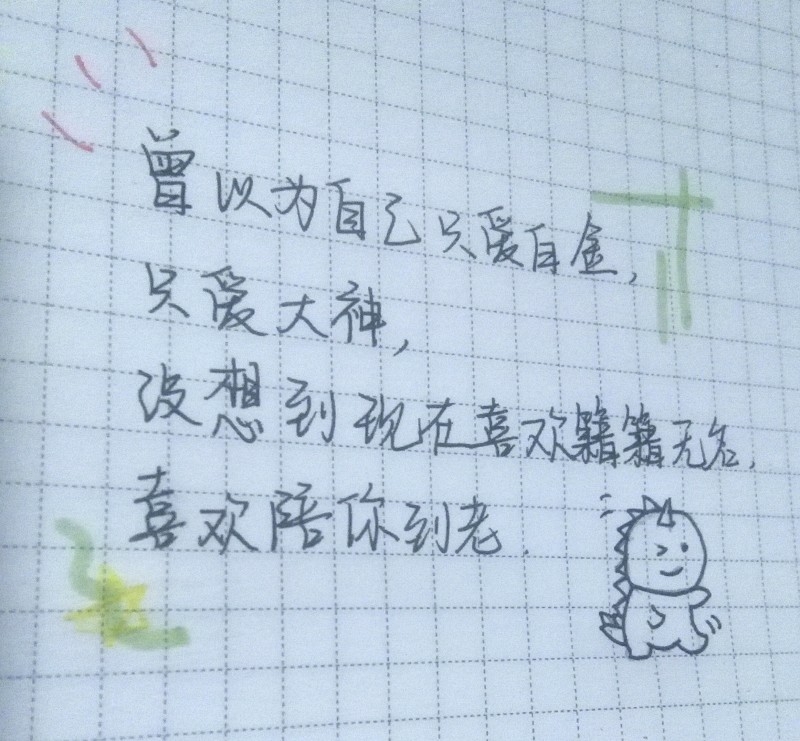 曾以为自己只爱白金,
只爱大神,
没想到现在喜欢籍籍无名,
喜欢陪你到老.